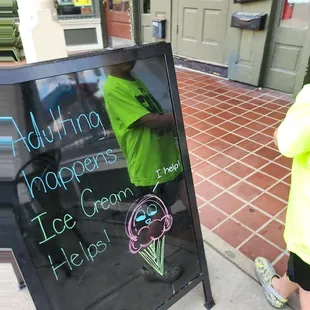 Adulting
happens
Ice Cream
Helps!
I help!